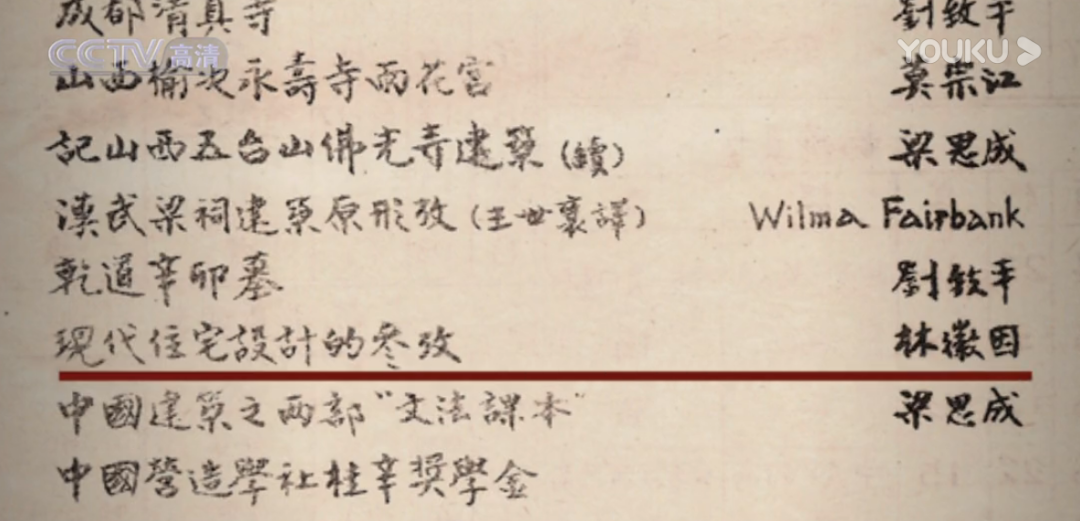 成都清真寺 劉致平
CCTV 高清
YOUKU
山西榆次永壽寺雨花宮 莫宗江
記山西五台山佛光寺建築（續） 梁思成
漢武梁祠建築原形攷（王世襄譯） Wilma Fairbank
乾道辛卯墓 劉致平
現代住宅設計的參攷 林徽因
中國建築之兩部"文法課本" 梁思成
中國營造學社桂辛獎學金